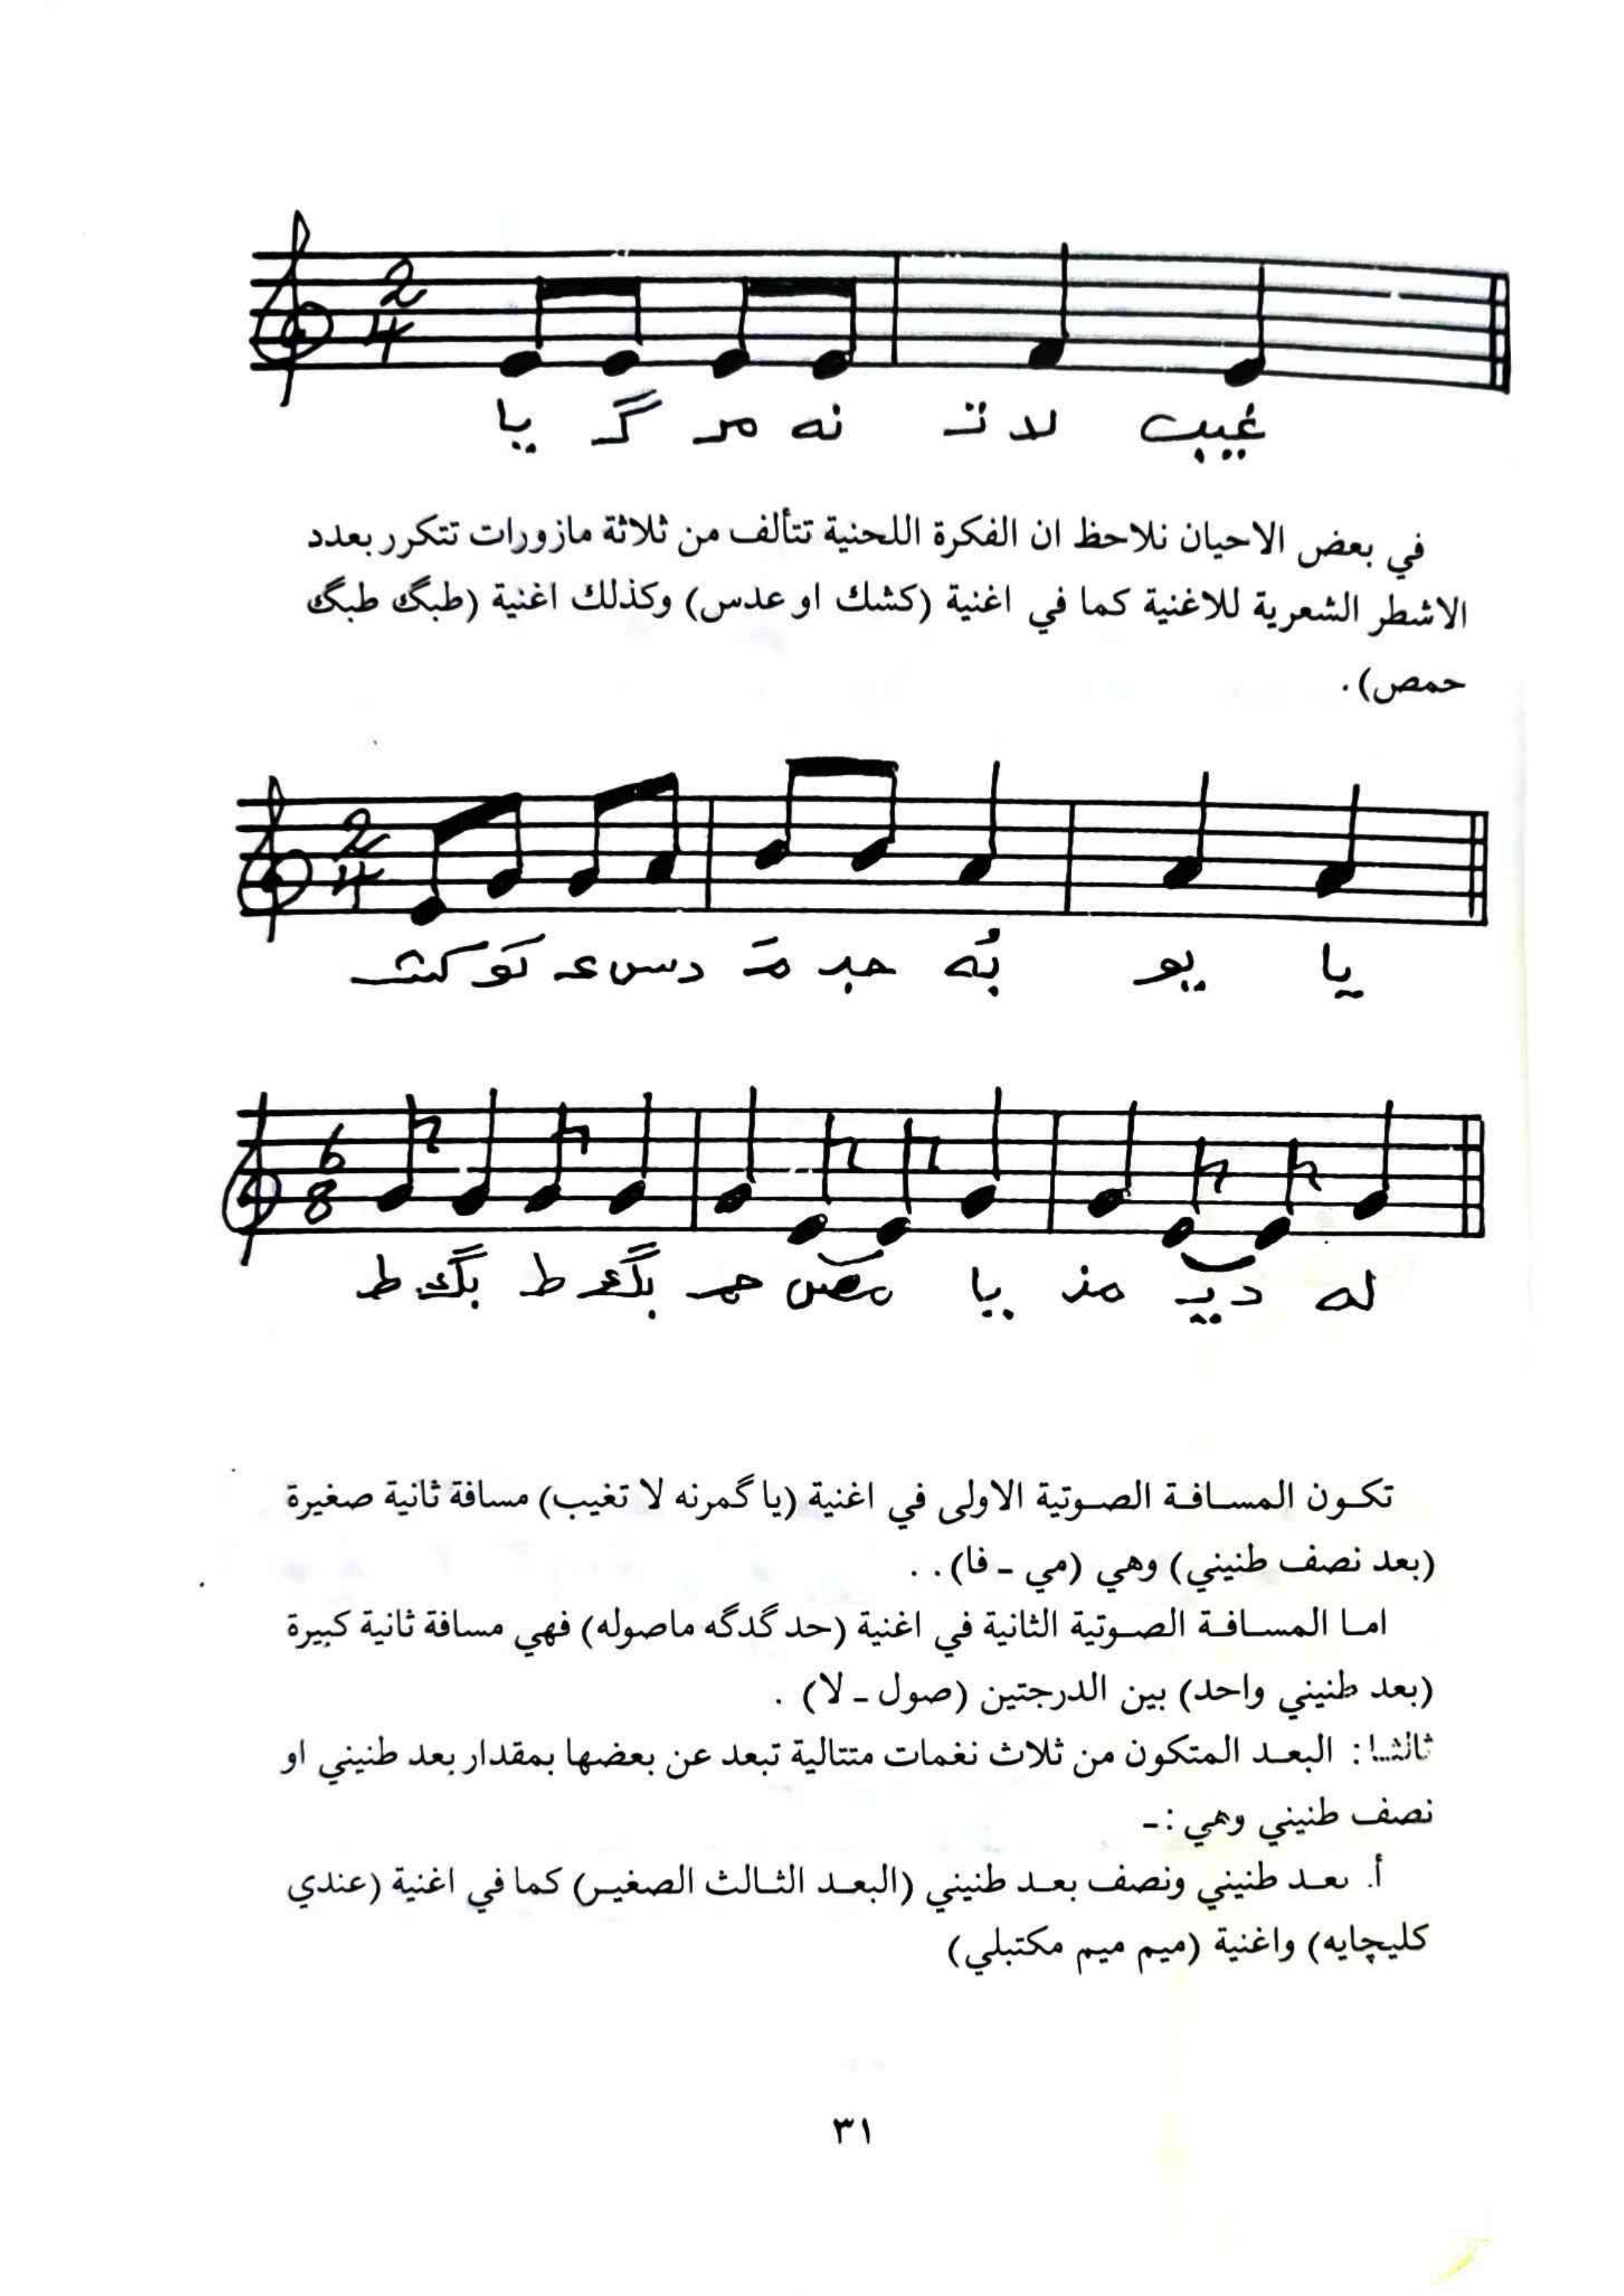 2
4
يا گـ مر نه لا تـ غيب
في بعض الاحيان نلاحظ ان الفكرة اللحنية تتألف من ثلاثة مازورات تتكرر بعدد
الاشطر الشعرية للاغنية كما في اغنية (كشك او عدس) وكذلك اغنية (طبگ طبگ
حمص).
2
4
بُه يو يا
6
8
ط بگ ط بگ حمـ مص يا مذ ديـ له
تكـون المسـافـة الصـوتية الاولى في اغنية (يا گمرنه لا تغيب) مسافة ثانية صغيرة
(بعد نصف طنيني) وهي (مي - فا)..
امـا المسـافـة الصـوتية الثانية في اغنية (حد گدگه ماصوله) فهي مسافة ثانية كبيرة
(بعد طنيني واحد) بين الدرجتين (صول - لا) .
ثالثـا: البعـد المتكون من ثلاث نغمات متتالية تبعد عن بعضها بمقدار بعد طنيني او
نصف طنيني وهي :-
أ. بعـد طنيني ونصف بعـد طنيني (البعـد الثـالث الصغيـر) كما في اغنية (عندي
كليچايه) واغنية (ميم ميم مكتبلي)
٣١